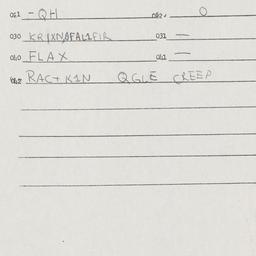 021 - QH 022. O
030 KRIXNØFALIFIR 031 —
040 FLAX 041 —
042 RACTKIN QGLE CREEP